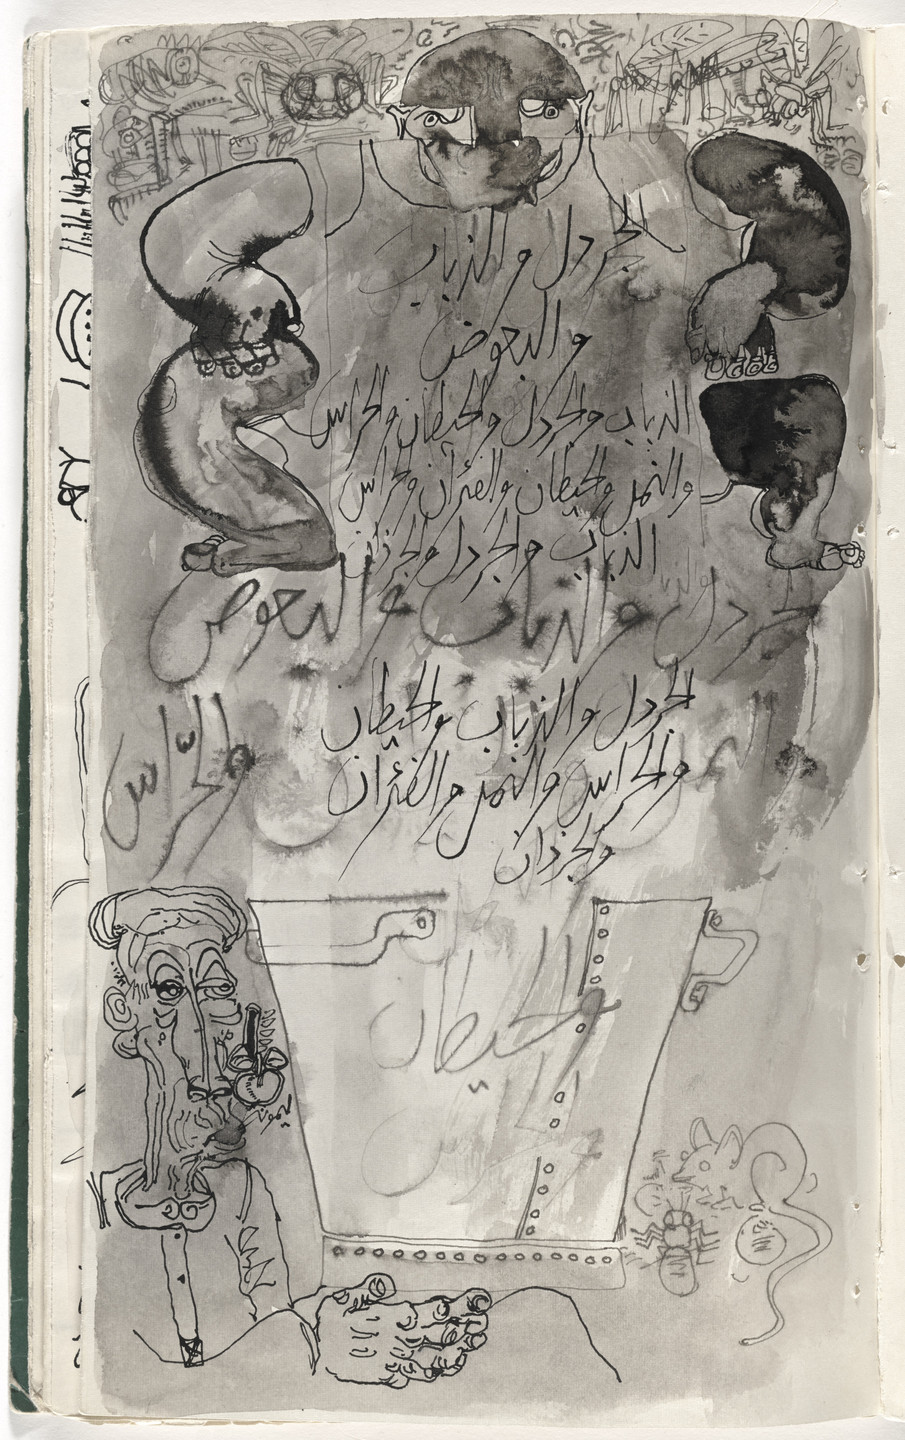 الجردل والذباب
والبعوض
الذباب والجردل والحيطان والحراس
والنمل والحيطان والفئران وحراس
الذباب والجردل والجرذان
جردل والذباب والبعوض
الجردل والذباب والحيطان
والحراس والنمل والفئران
والجرذان
والحراس
والحيطان